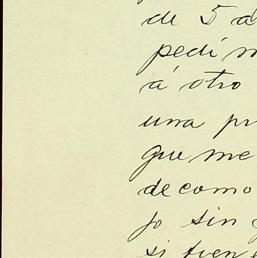 de 5 a
pedí m
á otro
una pr
que me
de como
jo sin
si tien